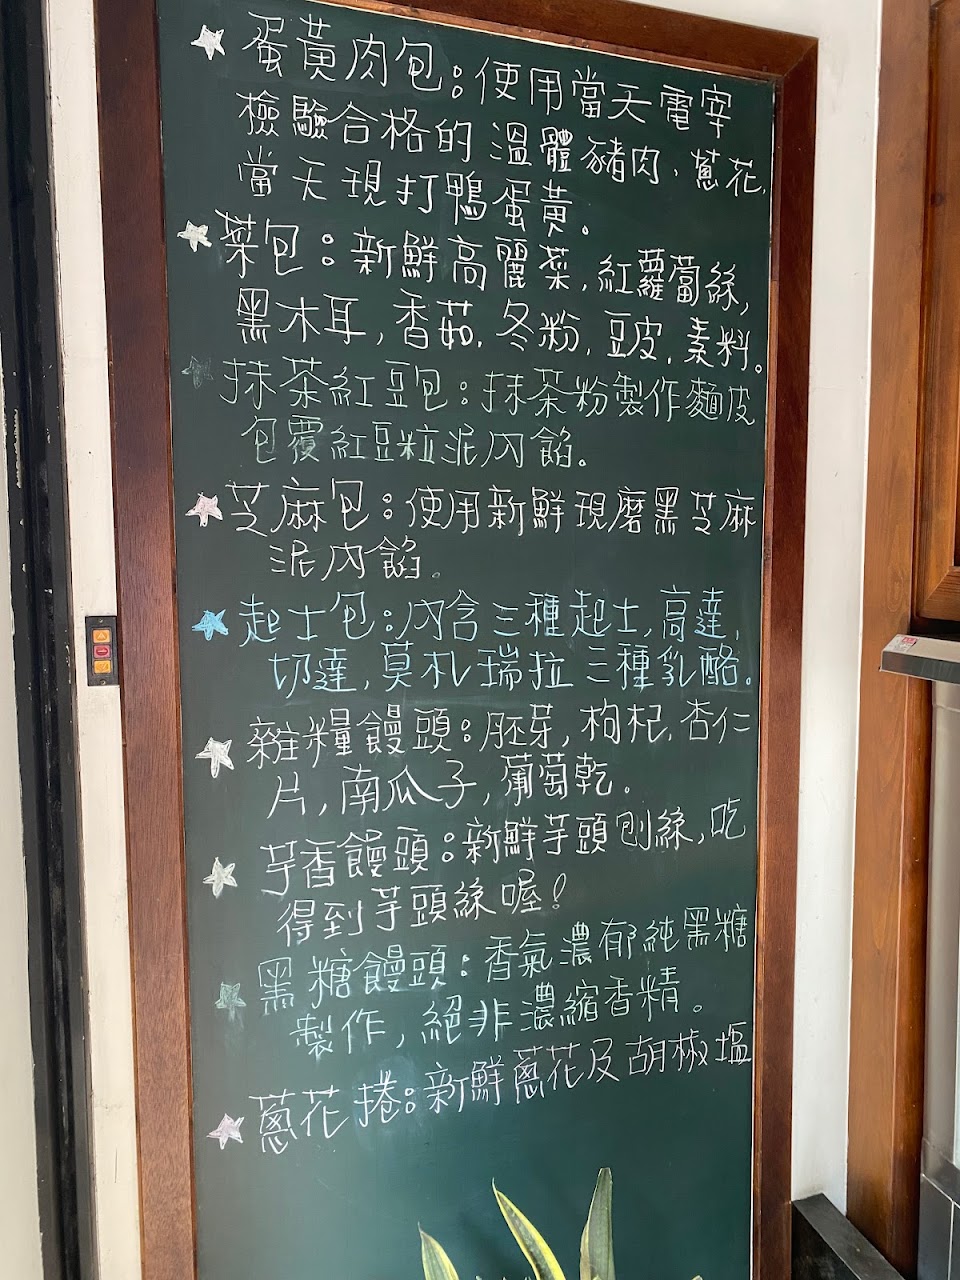 蛋黃肉包:使用當天電宰
檢驗合格的溫體豬肉、蔥花,
當天現打鴨蛋黃。
菜包:新鮮高麗菜,紅蘿蔔絲,
黑木耳,香菇,冬粉,豆皮,素料。
抹茶紅豆包:抹茶粉製作麵皮
包覆紅豆粒泥內餡。
芝麻包:使用新鮮現磨黑芝麻
泥內餡。
起士包:內含三種起士,高達,
切達,莫札瑞拉三種乳酪。
雜糧饅頭:胚芽,枸杞,杏仁
片,南瓜子,葡萄乾。
芋香饅頭:新鮮芋頭刨絲,吃
得到芋頭絲喔!
黑糖饅頭:香氣濃郁純黑糖
製作,絕非濃縮香精。
蔥花捲:新鮮蔥花及胡椒塩